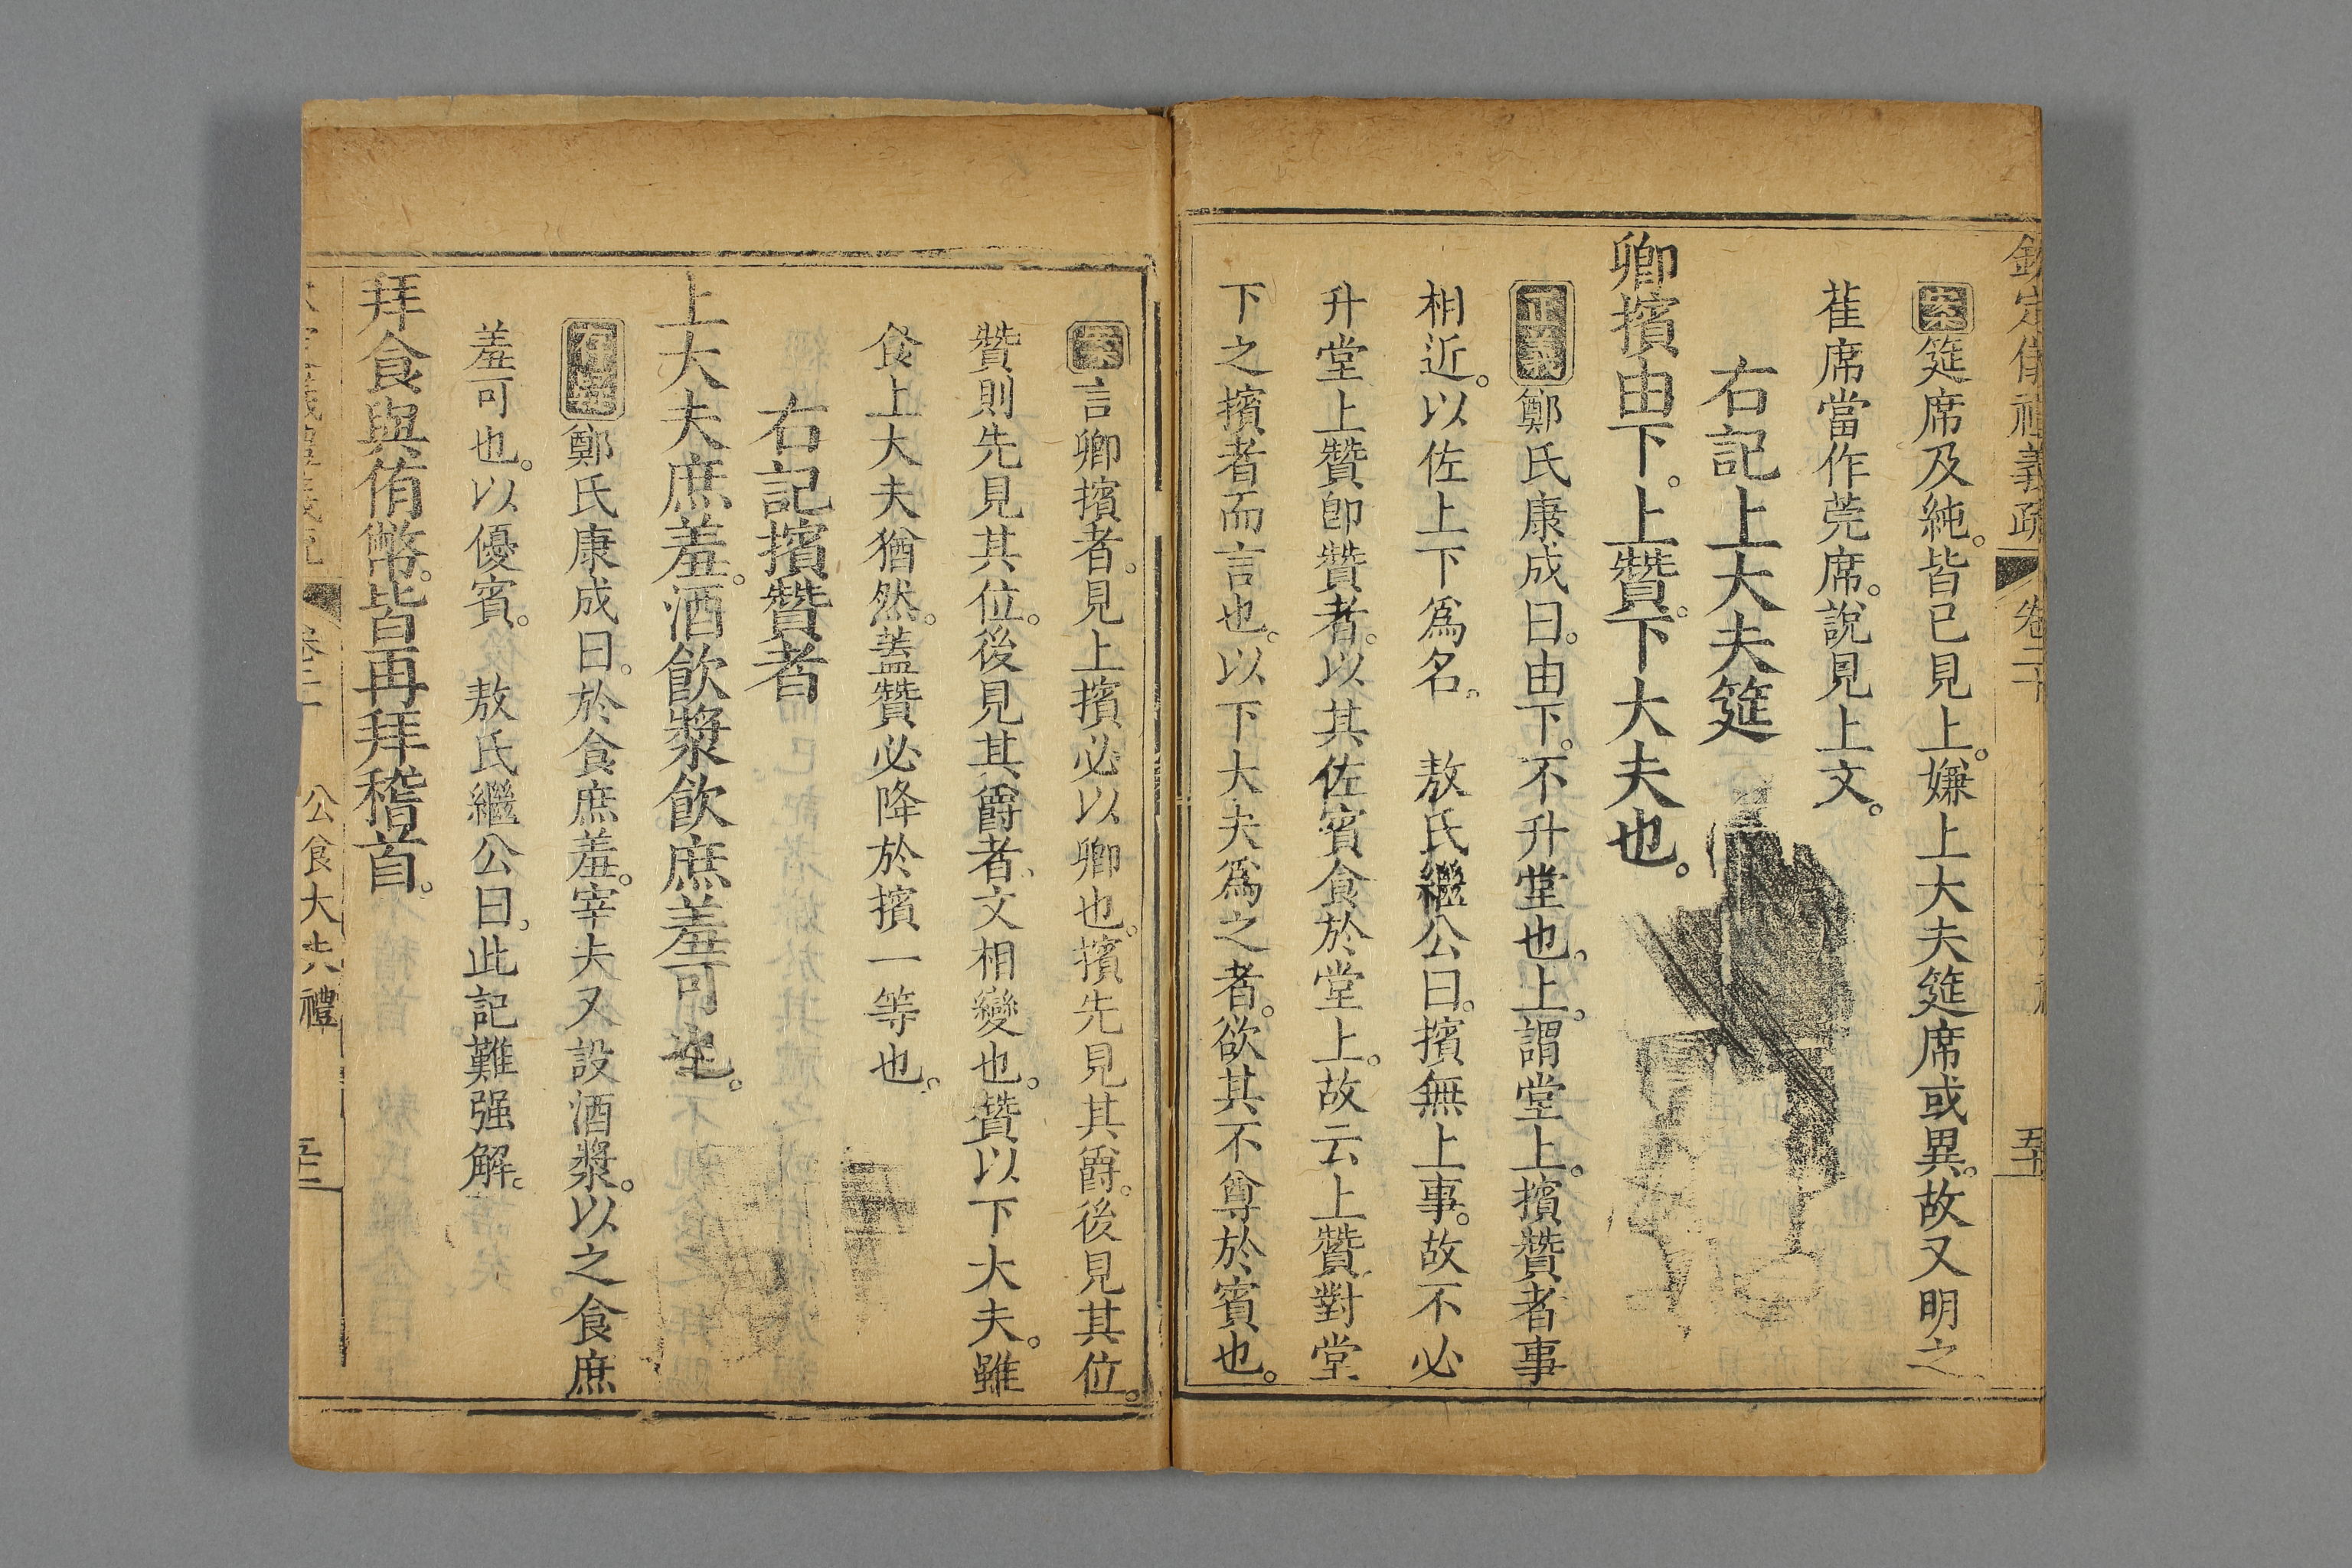 欽定儀禮義疏 卷二十
案筵席及純。皆已見上。嫌上大夫筵席或異。故又明之
萑席當作莞席。說見上文。
右記上大夫筵
卿擯由下。上贊。下大夫也。
正義鄭氏康成曰。由下。不升堂也。上。謂堂上。擯贊者事
相近。以佐上下爲名。 敖氏繼公曰。擯無上事。故不必
升堂上贊卽贊者。以其佐賓食於堂上。故云上贊對堂
下之擯者而言也。以下大夫爲之者。欲其不尊於賓也。
案言卿擯者。見上擯必以卿也。擯先見其爵。後見其位。
贊則先見其位。後見其爵者、文相變也。贊以下大夫。雖
食上大夫猶然。蓋贊必降於擯一等也。
右記擯贊者
上大夫庶羞。酒飲漿飲庶羞可也。
存疑鄭氏康成曰。於食庶羞。宰夫又設酒漿。以之食庶
羞可也。以優賓。 敖氏繼公曰。此記難强解。
拜食與侑幣。皆再拜稽首。
公食大夫禮